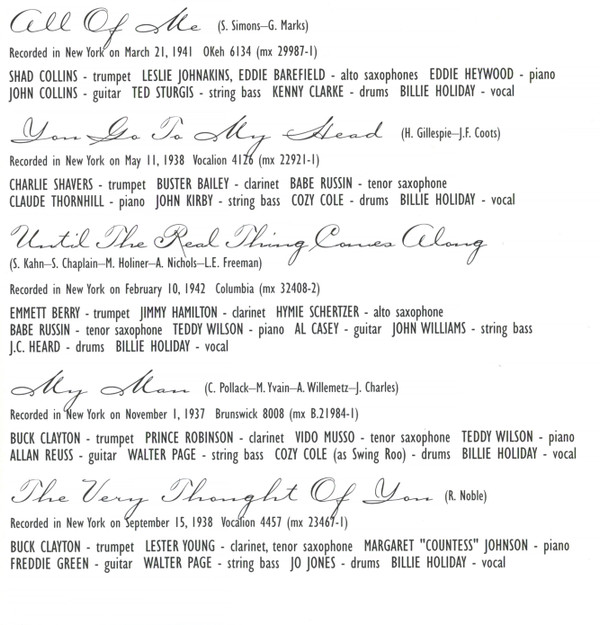 All Of Me (S. Simons—G. Marks)
Recorded in New York on March 21, 1941 OKeh 6134 (mx 29987-1)
SHAD COLLINS - trumpet LESLIE JOHNAKINS, EDDIE BAREFIELD - alto saxophones EDDIE HEYWOOD - piano
JOHN COLLINS - guitar TED STURGIS - string bass KENNY CLARKE - drums BILLIE HOLIDAY - vocal
You Go To My Head (H. Gillespie—J.F. Coots)
Recorded in New York on May 11, 1938 Vocalion 4126 (mx 22921-1)
CHARLIE SHAVERS - trumpet BUSTER BAILEY - clarinet BABE RUSSIN - tenor saxophone
CLAUDE THORNHILL - piano JOHN KIRBY - string bass COZY COLE - drums BILLIE HOLIDAY - vocal
Until The Real Thing Comes Along
(S. Kahn—S. Chaplain—M. Holiner—A. Nichols—L.E. Freeman)
Recorded in New York on February 10, 1942 Columbia (mx 32408-2)
EMMETT BERRY - trumpet JIMMY HAMILTON - clarinet HYMIE SCHERTZER - alto saxophone
BABE RUSSIN - tenor saxophone TEDDY WILSON - piano AL CASEY - guitar JOHN WILLIAMS - string bass
J.C. HEARD - drums BILLIE HOLIDAY - vocal
My Man (C. Pollack—M. Yvain—A. Willemetz—J. Charles)
Recorded in New York on November 1, 1937 Brunswick 8008 (mx B.21984-1)
BUCK CLAYTON - trumpet PRINCE ROBINSON - clarinet VIDO MUSSO - tenor saxophone TEDDY WILSON - piano
ALLAN REUSS - guitar WALTER PAGE - string bass COZY COLE (as Swing Roo) - drums BILLIE HOLIDAY - vocal
The Very Thought Of You (R. Noble)
Recorded in New York on September 15, 1938 Vocalion 4457 (mx 23467-1)
BUCK CLAYTON - trumpet LESTER YOUNG - clarinet, tenor saxophone MARGARET "COUNTESS" JOHNSON - piano
FREDDIE GREEN - guitar WALTER PAGE - string bass JO JONES - drums BILLIE HOLIDAY - vocal